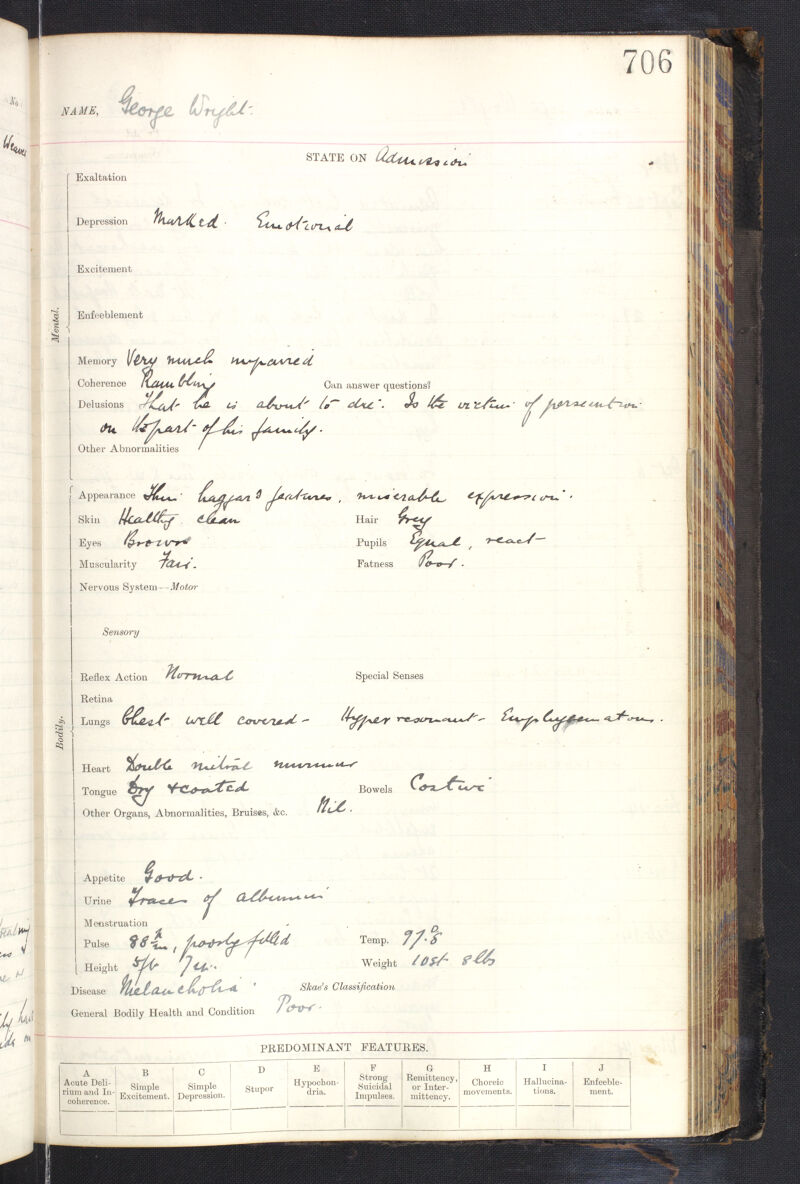 706
NAME, George Wright.
STATE ON Admission
Mental.
Exaltation
Depression Marked. Emotional
Excitement
Enfeeblement
Memory Very much impaired
Coherence Rambling Can answer questions?
Delusions That he is about to die. Is the victim of persecution
on the part of his family.
Other Abnormalities
Bodily.
Appearance Thin haggard features, miserable expression.
Skin Healthy clean Hair Grey
Eyes Brown Pupils Equal, react
Muscularity Fair. Fatness Poor.
Nervous System—Motor
Sensory
Reflex Action Normal Special Senses
Retina
Lungs Chest well covered - Hyper resonant - Emphysematous.
Heart Double mitral murmur
Tongue Dry & coated Bowels Costive
Other Organs, Abnormalities, Bruises, &c. Nil.
Appetite Good.
Urine Traces of albumin
Menstruation
Pulse 88 , poorly filled Temp. 97.8°
Height 5/6 Weight 10st 8lbs
Disease Melancholia. Skae's Classification
General Bodily Health and Condition Poor.
PREDOMINANT FEATURES.
A B C D E F G H I J
Acute Delirium and Incoherence. Simple Excitement. Simple Depression. Stupor Hypochondria. Strong Suicidal Impulses. Remittency, or Intermittency. Choreic movements. Hallucinations. Enfeeblement.
No.
Weaver